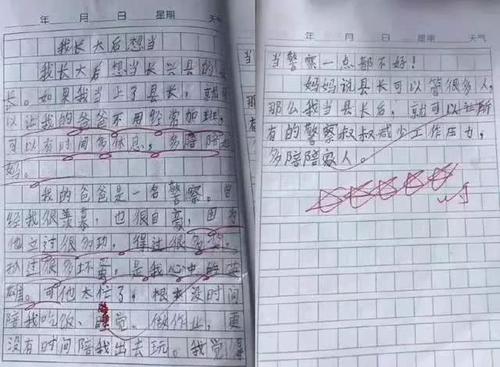 年 月 日 星期 天气
我长大后想当
我长大后想当长兴县的县
长。如果我当上了县长,就可
以让我的爸爸不用经常加班,
可以有时间多休息,多陪陪
妈。
我的爸爸是一名警察。
经我很羡慕,也很自豪,因为
他立过很多功,得过很多奖,
抓过很多坏蛋,是我心中的英
雄。可他太忙了,根本没时间
陪我吃饭、睡觉、做作业,更
没有时间陪我出去玩。我觉得
年 月 日 星期 天气
当警察一点都不好!
妈妈说县长可以管很多人,
那么我当县长后,就可以让所
有的警察叔叔减少工作压力,
多陪陪家人。